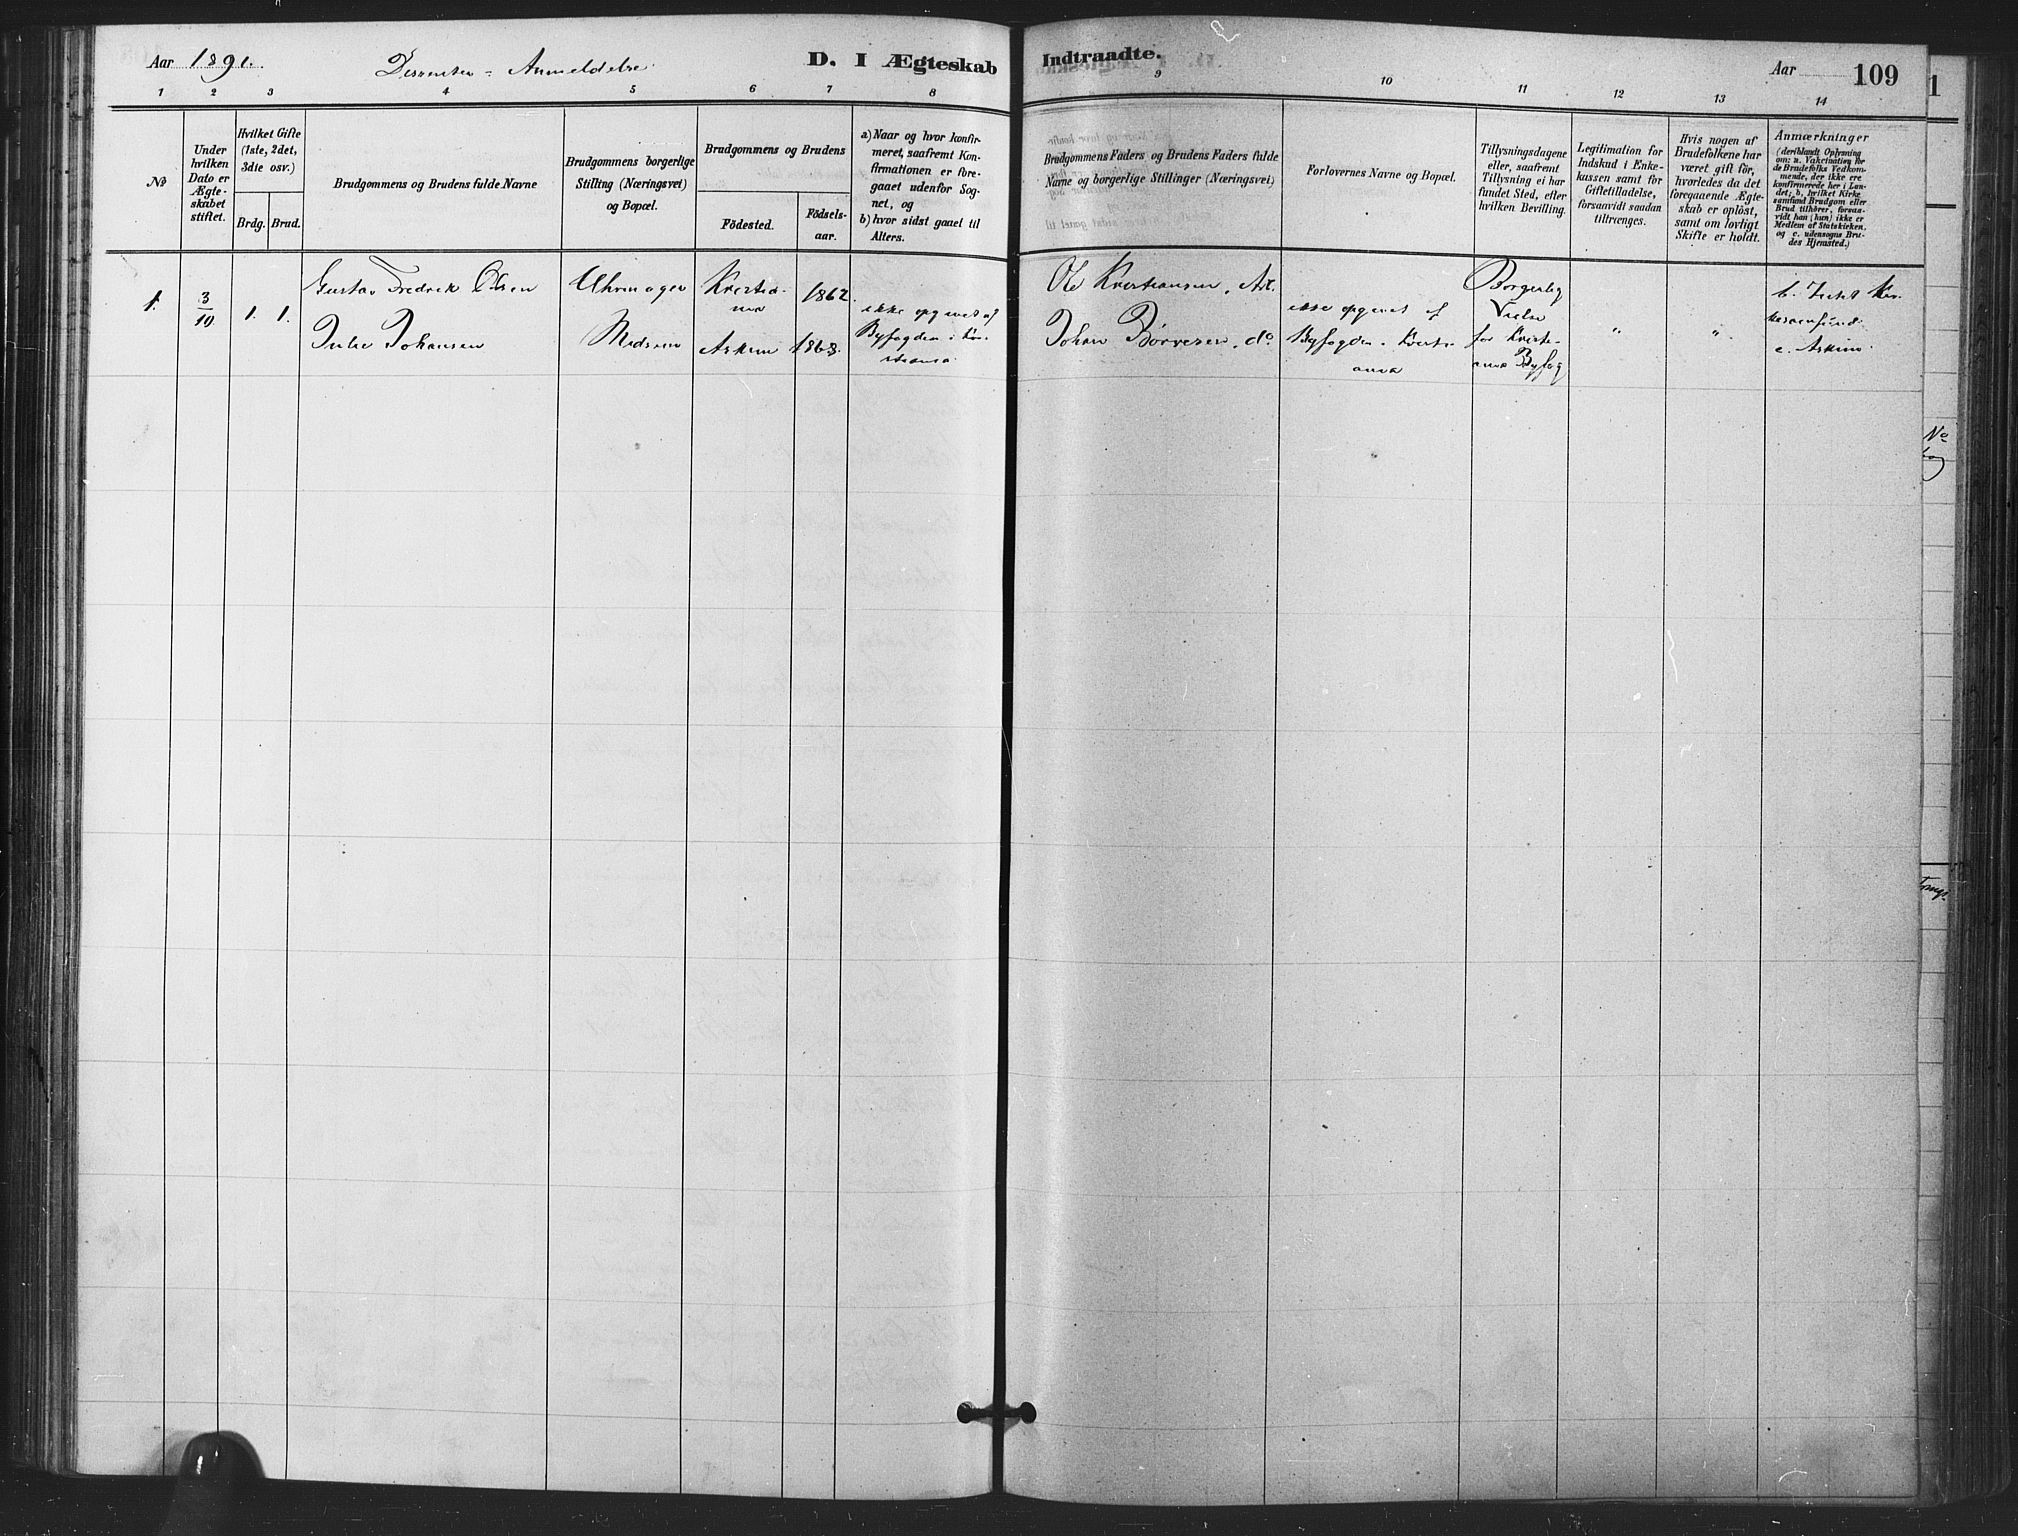 Aar 1891. Dissenter-Anmeldelse. D. I Ægteskab Indtraadte. Aar 109
1 2 3 4 5 6 7 8 9 10 11 12 13 14
No
Under
hvilken
Dato er
Ægte-
skabet
stiftet.
Hvilket Gifte
(1ste, 2det,
3die osv.)
Brdg. Brud.
Brudgommens og Brudens fulde Navne
Brudgommens borgerlige
Stilling (Næringsvei)
og Bopæl.
Brudgommens og Brudens
Födested.
Födsels-
aar.
a) Naar og hvor konfir-
meret, saafremt Kon-
firmationen er fore-
gaaet udenfor Sog-
net, og
b) hvor sidst gaaet til
Alters.
Brudgommens Faders og Brudens Faders fulde
Navne og borgerlige Stillinger (Næringsvei)
Forlovernes Navne og Bopæl.
Tillysningsdagene
eller, saafremt
Tillysning ei har
fundet Sted, efter
hvilken Bevilling.
Legitimation for
Indskud i Enke-
kassen samt for
Giftetilladelse,
forsaavidt saadan
tiltrænges.
Hvis nogen af
Brudefolkene har
været gift før,
hvorledes da det
foregaaende Ægte-
skab er opløst,
samt om lovligt
Skifte er holdt.
Anmærkninger
(deriblandt Oplysning
om: a. Vakcination for
de Brudefolks Vedkom-
mende, der ikke ere
konfirmerede her i Lan-
det; b. hvilket Kirke-
samfund Brudgom eller
Brud tilhører, forsaa-
vidt han (hun) ikke er
Medlem af Statskirken,
og c. udensogns Bru-
des Hjemsted.)
1. 3/10 1. 1.
Gustav Fredrik Olsen
Julie Johansen
Uhrmager
Kristia-
nia
Askim
1862.
1868.
ikke opgivet af
Byfogden i Kri-
stiania
Ole Kristiansen, Arb.
Johan Børresen, do
ikke opgivet af
Byfogden i Kristi-
ania
Borgerlig
Vielse
for Kristi-
ania Byfog
"
"
c. Askim.